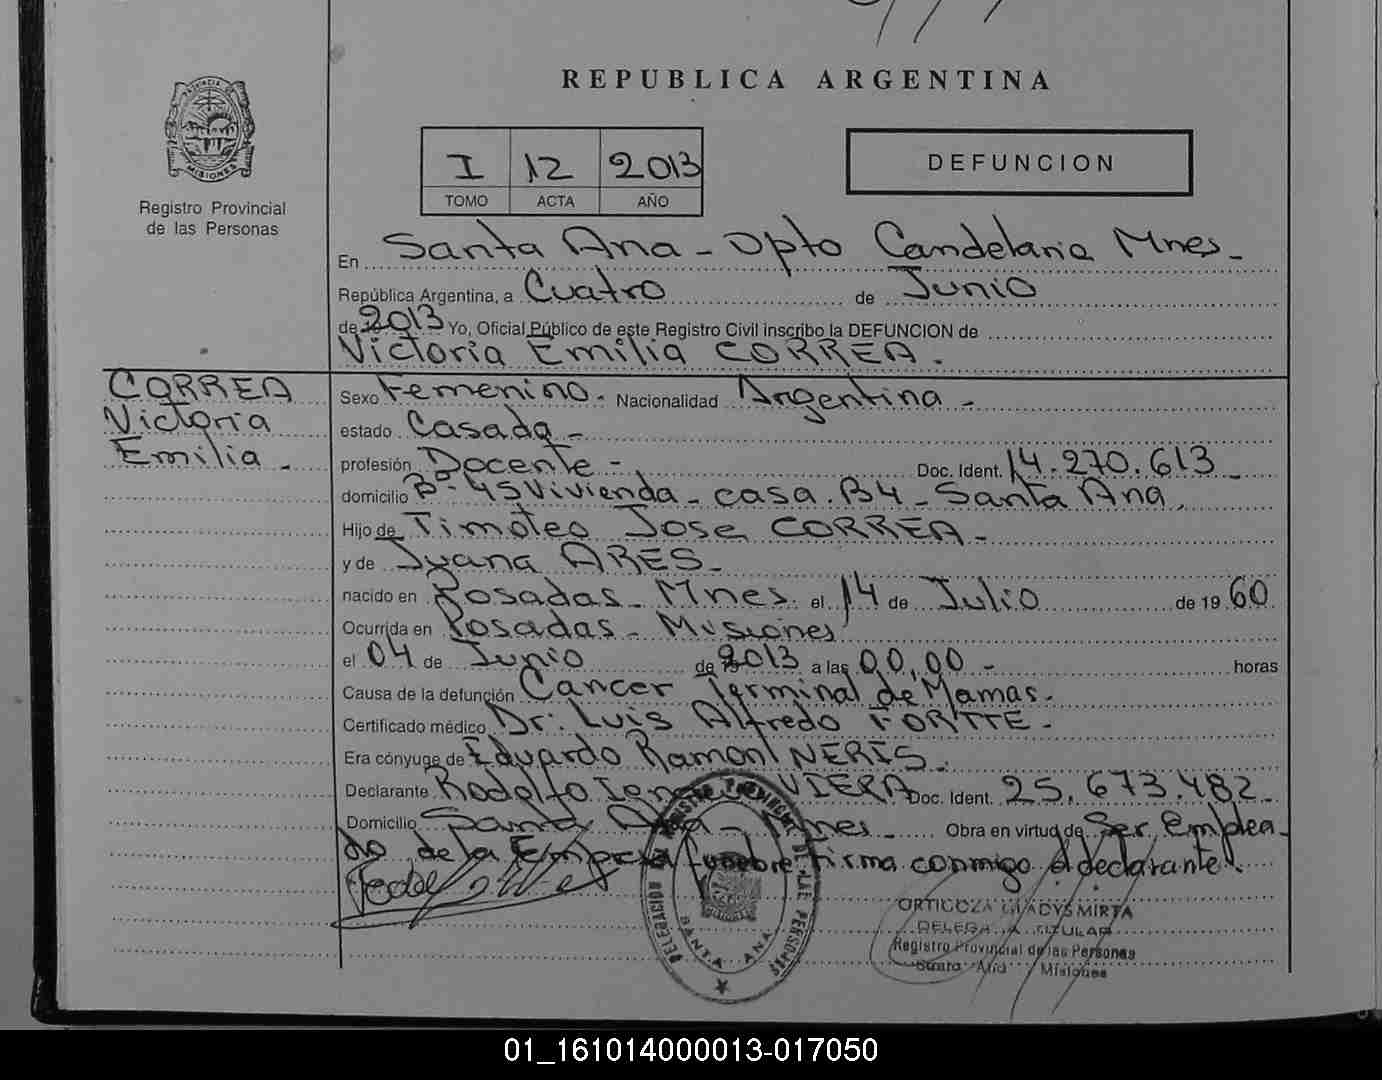 REPUBLICA ARGENTINA
PROVINCIA DE
MISIONES
Registro Provincial
de las Personas
I 12 2013
TOMO ACTA AÑO
DEFUNCION
En Santa Ana - Dpto Candelaria Mnes -
República Argentina, a Cuatro de Junio
de 2013 Yo, Oficial Público de este Registro Civil inscribo la DEFUNCION de
Victoria Emilia CORREA.
CORREA
Victoria
Emilia -
Sexo Femenino. Nacionalidad Argentina -
estado Casada -
profesión Docente - Doc. Ident. 14.270.613 -
domicilio Bº 45 Vivienda - casa. B4 - Santa Ana.
Hijo de Timoteo Jose CORREA -
y de Juana ARES -
nacido en Posadas - Mnes. el 14 de Julio de 19 60
Ocurrida en Posadas - Misiones
el 04 de Junio de 2013 a las 00,00 - horas
Causa de la defunción Cancer Terminal de Mamas -
Certificado médico Dr: Luis Alfredo FORTTE -
Era cónyuge de Eduardo Ramon NERIS -
Declarante Rodolfo VIERA Doc. Ident. 25.673.482 -
Domicilio Santa Ana - Mnes - Obra en virtud de Ser Emplea-
do de la Empresa funebre firma conmigo el declarante.
DELEGACION DEL REGISTRO PROVINCIAL DE LAS PERSONAS
SANTA ANA
ORTIGOZA GLADYS MIRTA
DELEGADA TITULAR
Registro Provincial de las Personas
Santa Ana Misiones
01_161014000013-017050